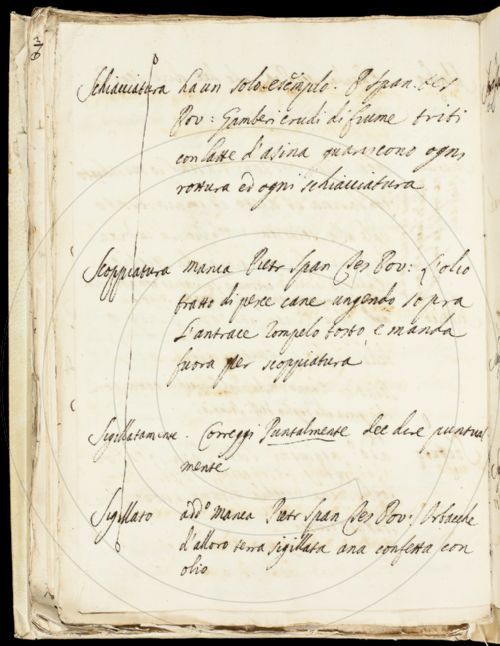 Schiacciatura ha un solo esempio. P. Span. Tes
Pov: Gamberi crudi di fiume triti
con latte d'asina guariscono ogni
rottura ed ogni schiacciatura
Scoppiatura manca Pietr Span Tes Pov: L'olio
tratto di pesce cane ungendo sopra
l'antrace rompelo tosto, e manda
fuora per scoppiatura
Sigillatamente. Correggi Puntalmente dee dire puntual
mente
Sigillato add.o manca Pietr Span Tes Pov: Orbacche
d'alloro terra sigillata ana confetta con
olio